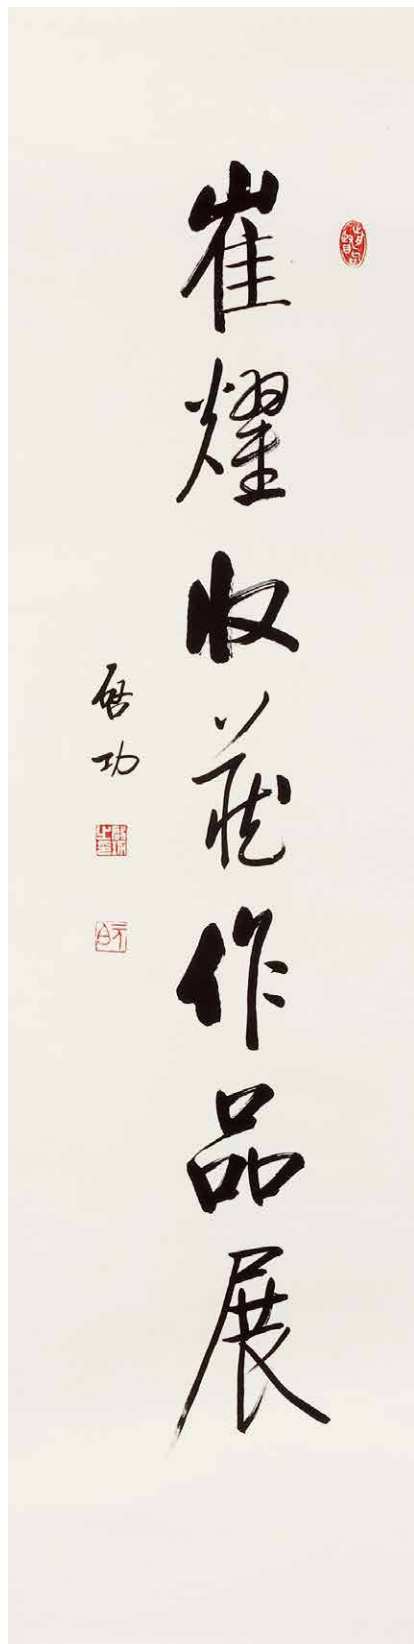 崔耀收藏作品展
启功